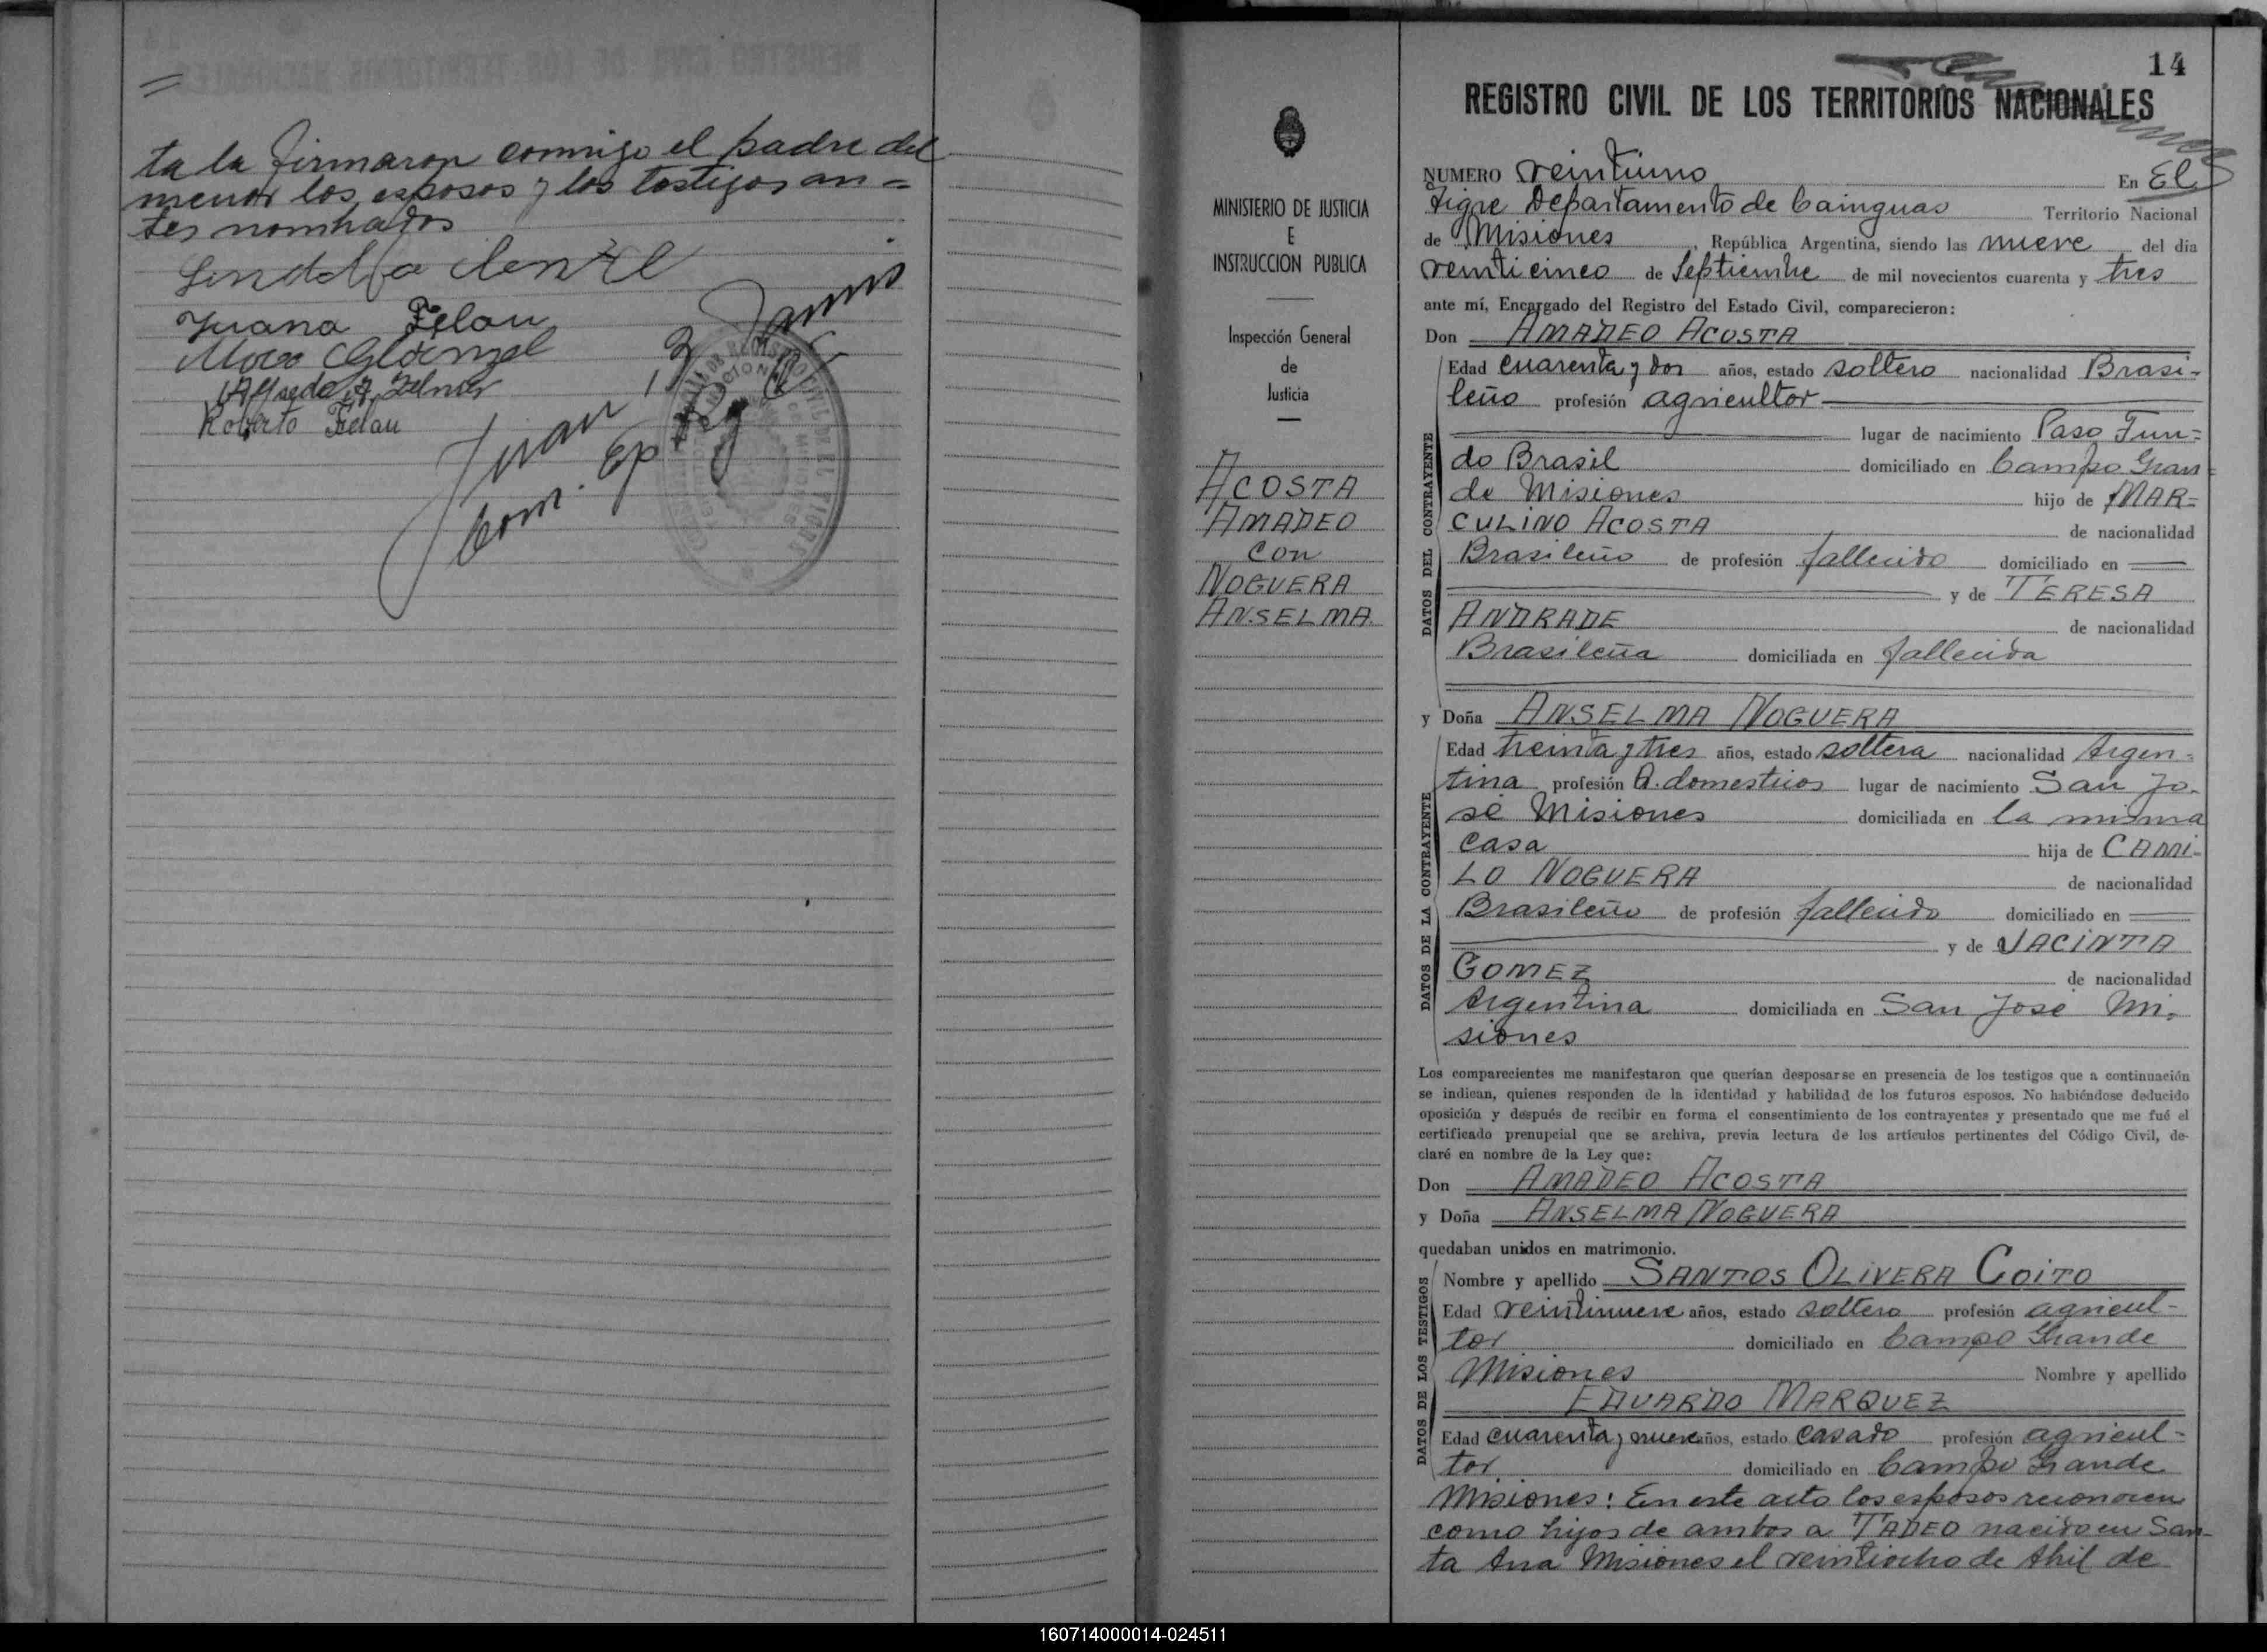 ta la firmaron conmigo el padre del
menor los esposos y los testigos an=
tes nombrados
Juana Felau
Roberto Felau
Juan B.
14
REGISTRO CIVIL DE LOS TERRITORIOS NACIONALES
MINISTERIO DE JUSTICIA
E
INSTRUCCION PUBLICA
Inspección General
de
Justicia
ACOSTA
AMADEO
con
NOGUERA
ANSELMA
NUMERO veintiuno En El
Tigre Departamento de Cainguas Territorio Nacional
de Misiones, República Argentina, siendo las nueve del día
veinticinco de Septiembre de mil novecientos cuarenta y tres
ante mí, Encargado del Registro del Estado Civil, comparecieron:
Don AMADEO ACOSTA
DATOS DEL CONTRAYENTE
Edad cuarenta y dos años, estado soltero nacionalidad Brasi-
leño profesión agricultor
lugar de nacimiento Paso Fun=
do Brasil domiciliado en Campo Gran=
de Misiones hijo de MAR=
CULINO ACOSTA de nacionalidad
Brasileño de profesión fallecido domiciliado en
y de TERESA
ANDRADE de nacionalidad
Brasileña domiciliada en fallecida
y Doña ANSELMA NOGUERA
DATOS DE LA CONTRAYENTE
Edad treinta y tres años, estado soltera nacionalidad Argen-
tina profesión Q. domesticos lugar de nacimiento San Jo-
sé Misiones domiciliada en la misma
casa hija de CAMI-
LO NOGUERA de nacionalidad
Brasileño de profesión fallecido domiciliado en
y de JACINTA
GOMEZ de nacionalidad
Argentina domiciliada en San José Mi-
siones
Los comparecientes me manifestaron que querían desposarse en presencia de los testigos que a continuación
se indican, quienes responden de la identidad y habilidad de los futuros esposos. No habiéndose deducido
oposición y después de recibir en forma el consentimiento de los contrayentes y presentado que me fué el
certificado prenupcial que se archiva, previa lectura de los artículos pertinentes del Código Civil, de-
claré en nombre de la Ley que:
Don AMADEO ACOSTA
y Doña ANSELMA NOGUERA
quedaban unidos en matrimonio.
DATOS DE LOS TESTIGOS
Nombre y apellido SANTOS OLIVERA COITO
Edad veintinueve años, estado soltero profesión agricul-
tor domiciliado en Campo Grande
Misiones Nombre y apellido
EDUARDO MARQUEZ
Edad cuarenta y nueve años, estado casado profesión agricul-
tor domiciliado en Campo Grande
Misiones: En este acto los esposos reconocen
como hijos de ambos a TADEO nacido en San-
ta Ana Misiones el veintiocho de Abril de
160714000014-024511